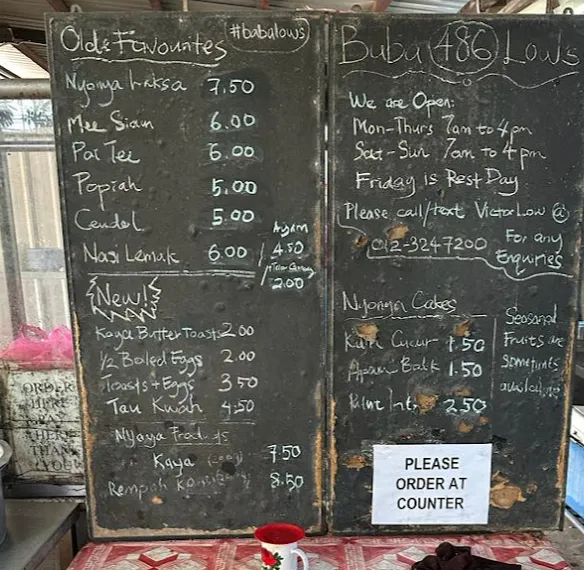 Old Favourites
#babalows
Nyonya Laksa 7.50
Mee Siam 6.00
Pai Tee 6.00
Popiah 5.00
Cendol 5.00
Nasi Lemak 6.00 / Ayam 4.50
2.00
New!
Kaya Butter Toasts 2.00
1/2 Boiled Eggs 2.00
Toasts + Eggs 3.50
Tau Kwah 4.50
Nyonya Products
Kaya 7.50
Rempah 8.50
Baba 486 Lows
We are Open:
Mon-Thurs 7am to 4pm
Sat-Sun 7am to 4pm
Friday is Rest Day
Please call/text Victor Low @
012-3247200 For any
Enquiries
Nyonya Cakes
Kuih Cucur 1.50
Apam Balik 1.50
Pulut Inti 2.50
Seasonal
Fruits are
sometimes
available
PLEASE
ORDER AT
COUNTER
ORDER
HERE
PAY
HERE
THANK
YOU